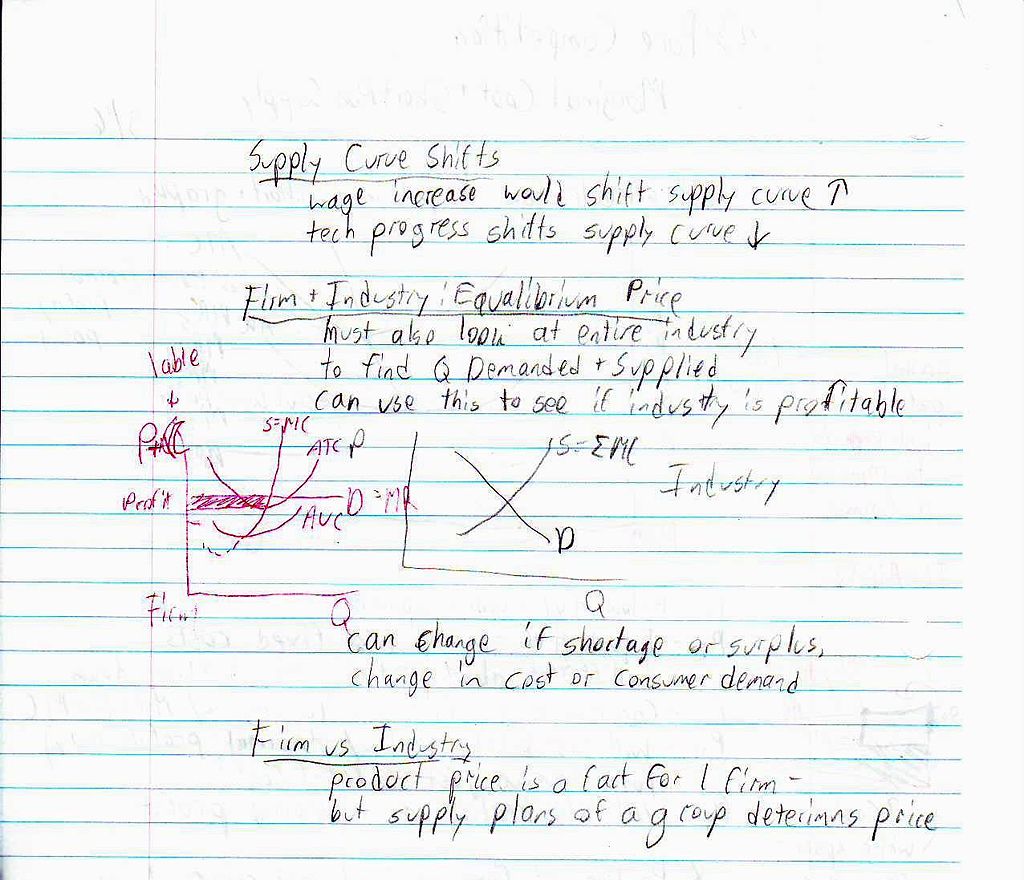 Supply Curve Shifts
wage increase would shift supply curve ↑
tech progress shifts supply curve ↓
Firm + Industry : Equalibrium Price
must also look at entire industry
to find Q Demanded + Supplied
can use this to see if industry is profitable
lable
↓
S=MC
ATC
Profit
D = MR
AVC
Firm
Q
P
S = ΣMC
Industry
D
Q
can change if shortage or surplus,
change in cost or consumer demand
Firm vs Industry
product price is a fact for 1 firm -
but supply plans of a group deterimns price